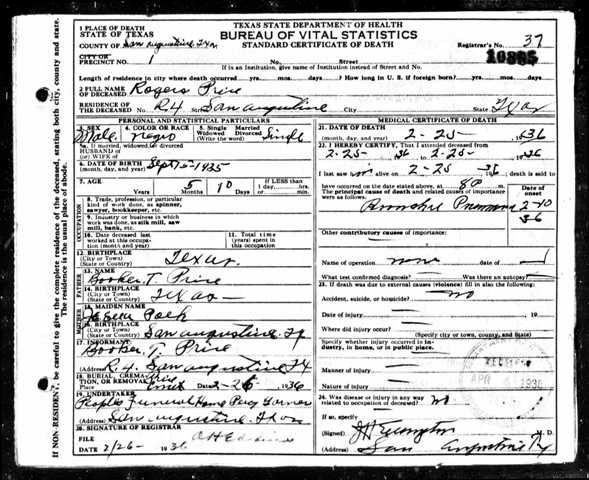 TEXAS STATE DEPARTMENT OF HEALTH
BUREAU OF VITAL STATISTICS
STANDARD CERTIFICATE OF DEATH
1 PLACE OF DEATH
STATE OF TEXAS
COUNTY OF San Augustine
CITY OR
PRECINCT NO. 1 No. Street
Registrar's No. 37
If in an Institution, give name of Institution instead of Street and No.
Length of residence in city where death occurred yrs. mos. days. ? How long in U. S. if foreign born? yrs. mos. days
2 FULL NAME
OF DECEASED Rogers Price
RESIDENCE OF
THE DECEASED No. R4 San Augustine City State Texas
PERSONAL AND STATISTICAL PARTICULARS
3. SEX 4. COLOR OR RACE 5. Single Married Widowed Divorced (Write the word)
Male Negro Single
5a. If married, widowed, or divorced
HUSBAND OF
(or) WIFE OF
6. DATE OF BIRTH
(month, day, and year) Sept 1935
7. AGE 5 Months 10 Days If LESS than
1 day, hrs. min.
OCCUPATION
8. Trade, profession, or particular
kind of work done, as spinner,
sawyer, bookkeeper, etc.
9. Industry or business in which
work was done, as silk mill, saw
mill, bank, etc.
10. Date deceased last
worked at this occupation
(month and year)
11. Total time
(years) spent in
this occupation
12. BIRTHPLACE
(City or Town)
(State or Country) Texas
FATHER
13. NAME
Booker T. Price
14. BIRTHPLACE
(City or Town)
(State or Country) Texas
MOTHER
15. MAIDEN NAME
Polk
16. BIRTHPLACE
(City or Town)
(State or Country) San Augustine
17. INFORMANT
Booker T. Price
(Address) R4. San Augustine TX
18. BURIAL, CREMATION, OR REMOVAL
Place Date 2-26 1936
19. UNDERTAKER
Peoples Funeral Home Percy Garner
San Augustine
20. SIGNATURE OF REGISTRAR
FILE
DATE 2/26- 1936
MEDICAL CERTIFICATE OF DEATH
21. DATE OF DEATH
(month, day, and year) 2-25 1936
22. I HEREBY CERTIFY, That I attended deceased from
2-25 36 to 2-25 1936
I last saw alive on 2-25 36, death is said to
have occurred on the date stated above, at 8P m.
The principal cause of death and related causes of importance
were as follows:
Date of
onset
Pneumonia 2-20
36
Other contributory causes of importance:
Name of operation none date of
What test confirmed diagnosis? Was there an autopsy?
23. If death was due to external causes (violence) fill in also the following:
Accident, suicide, or homicide? no
Date of injury , 19
Where did injury occur?
(Specify city or town, county, and State)
Specify whether injury occurred in Industry, in home, or in public place.
Manner of injury
Nature of injury
24. Was disease or injury in any way
related to occupation of deceased? no
If so, specify
(Signed) M. D.
(Address) San Augustine Tx
IF NON-RESIDENT, be careful to give the complete residence of the deceased, stating both city, county and state.
The residence is the usual place of abode.